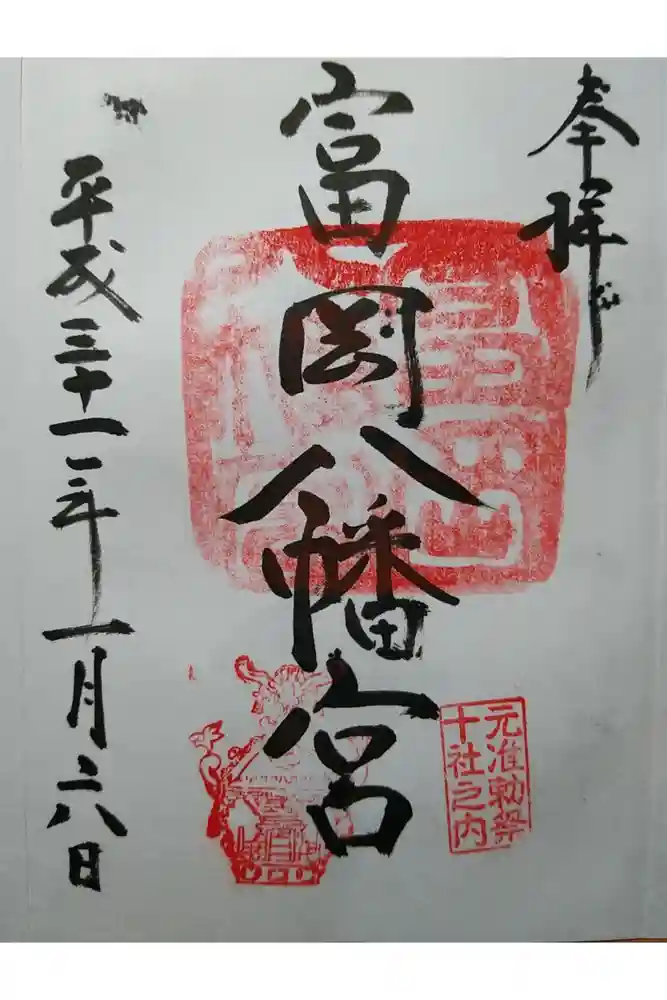 奉拝
富岡八幡宮
元准勅祭
十社之内
平成三十一年一月二八日